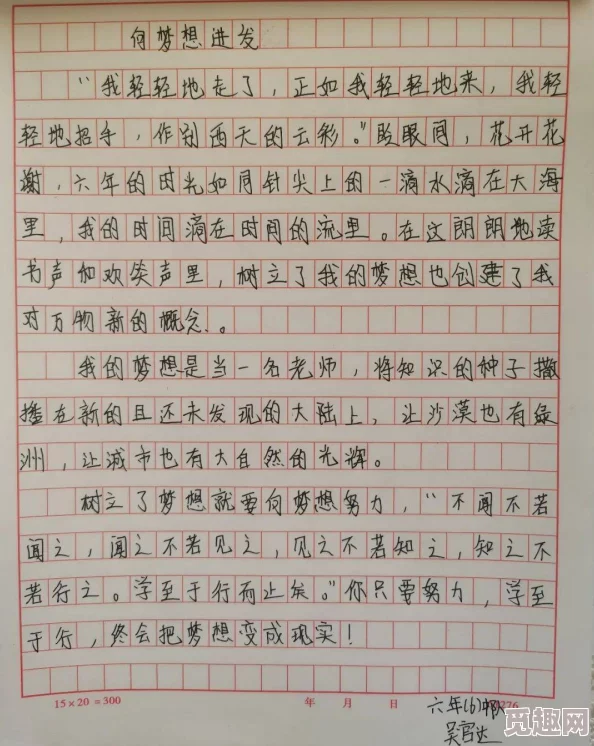 向梦想进发
“我轻轻地走了，正如我轻轻地来，我轻
轻地招手，作别西天的云彩。”眨眼间，花开花
谢，六年的时光如同针尖上的一滴水滴在大海
里，我的时间滴在时间的流里。在这朗朗地读
书声和欢笑声里，树立了我的梦想也创建了我
对万物新的概念.。
我的梦想是当一名老师，将知识的种子撒
播在新的且还未发现的大陆上，让沙漠也有绿
洲，让城市也有大自然的光辉。
树立了梦想就要向梦想努力，“不闻不若
闻之，闻之不若见之，见之不若知之，知之不
若行之。学至于行而止矣。”你只要努力，学至
于行，终会把梦想变成现实！
15×20=300 年 月 日 226
六年(6)中队
吴宫达
觅趣网